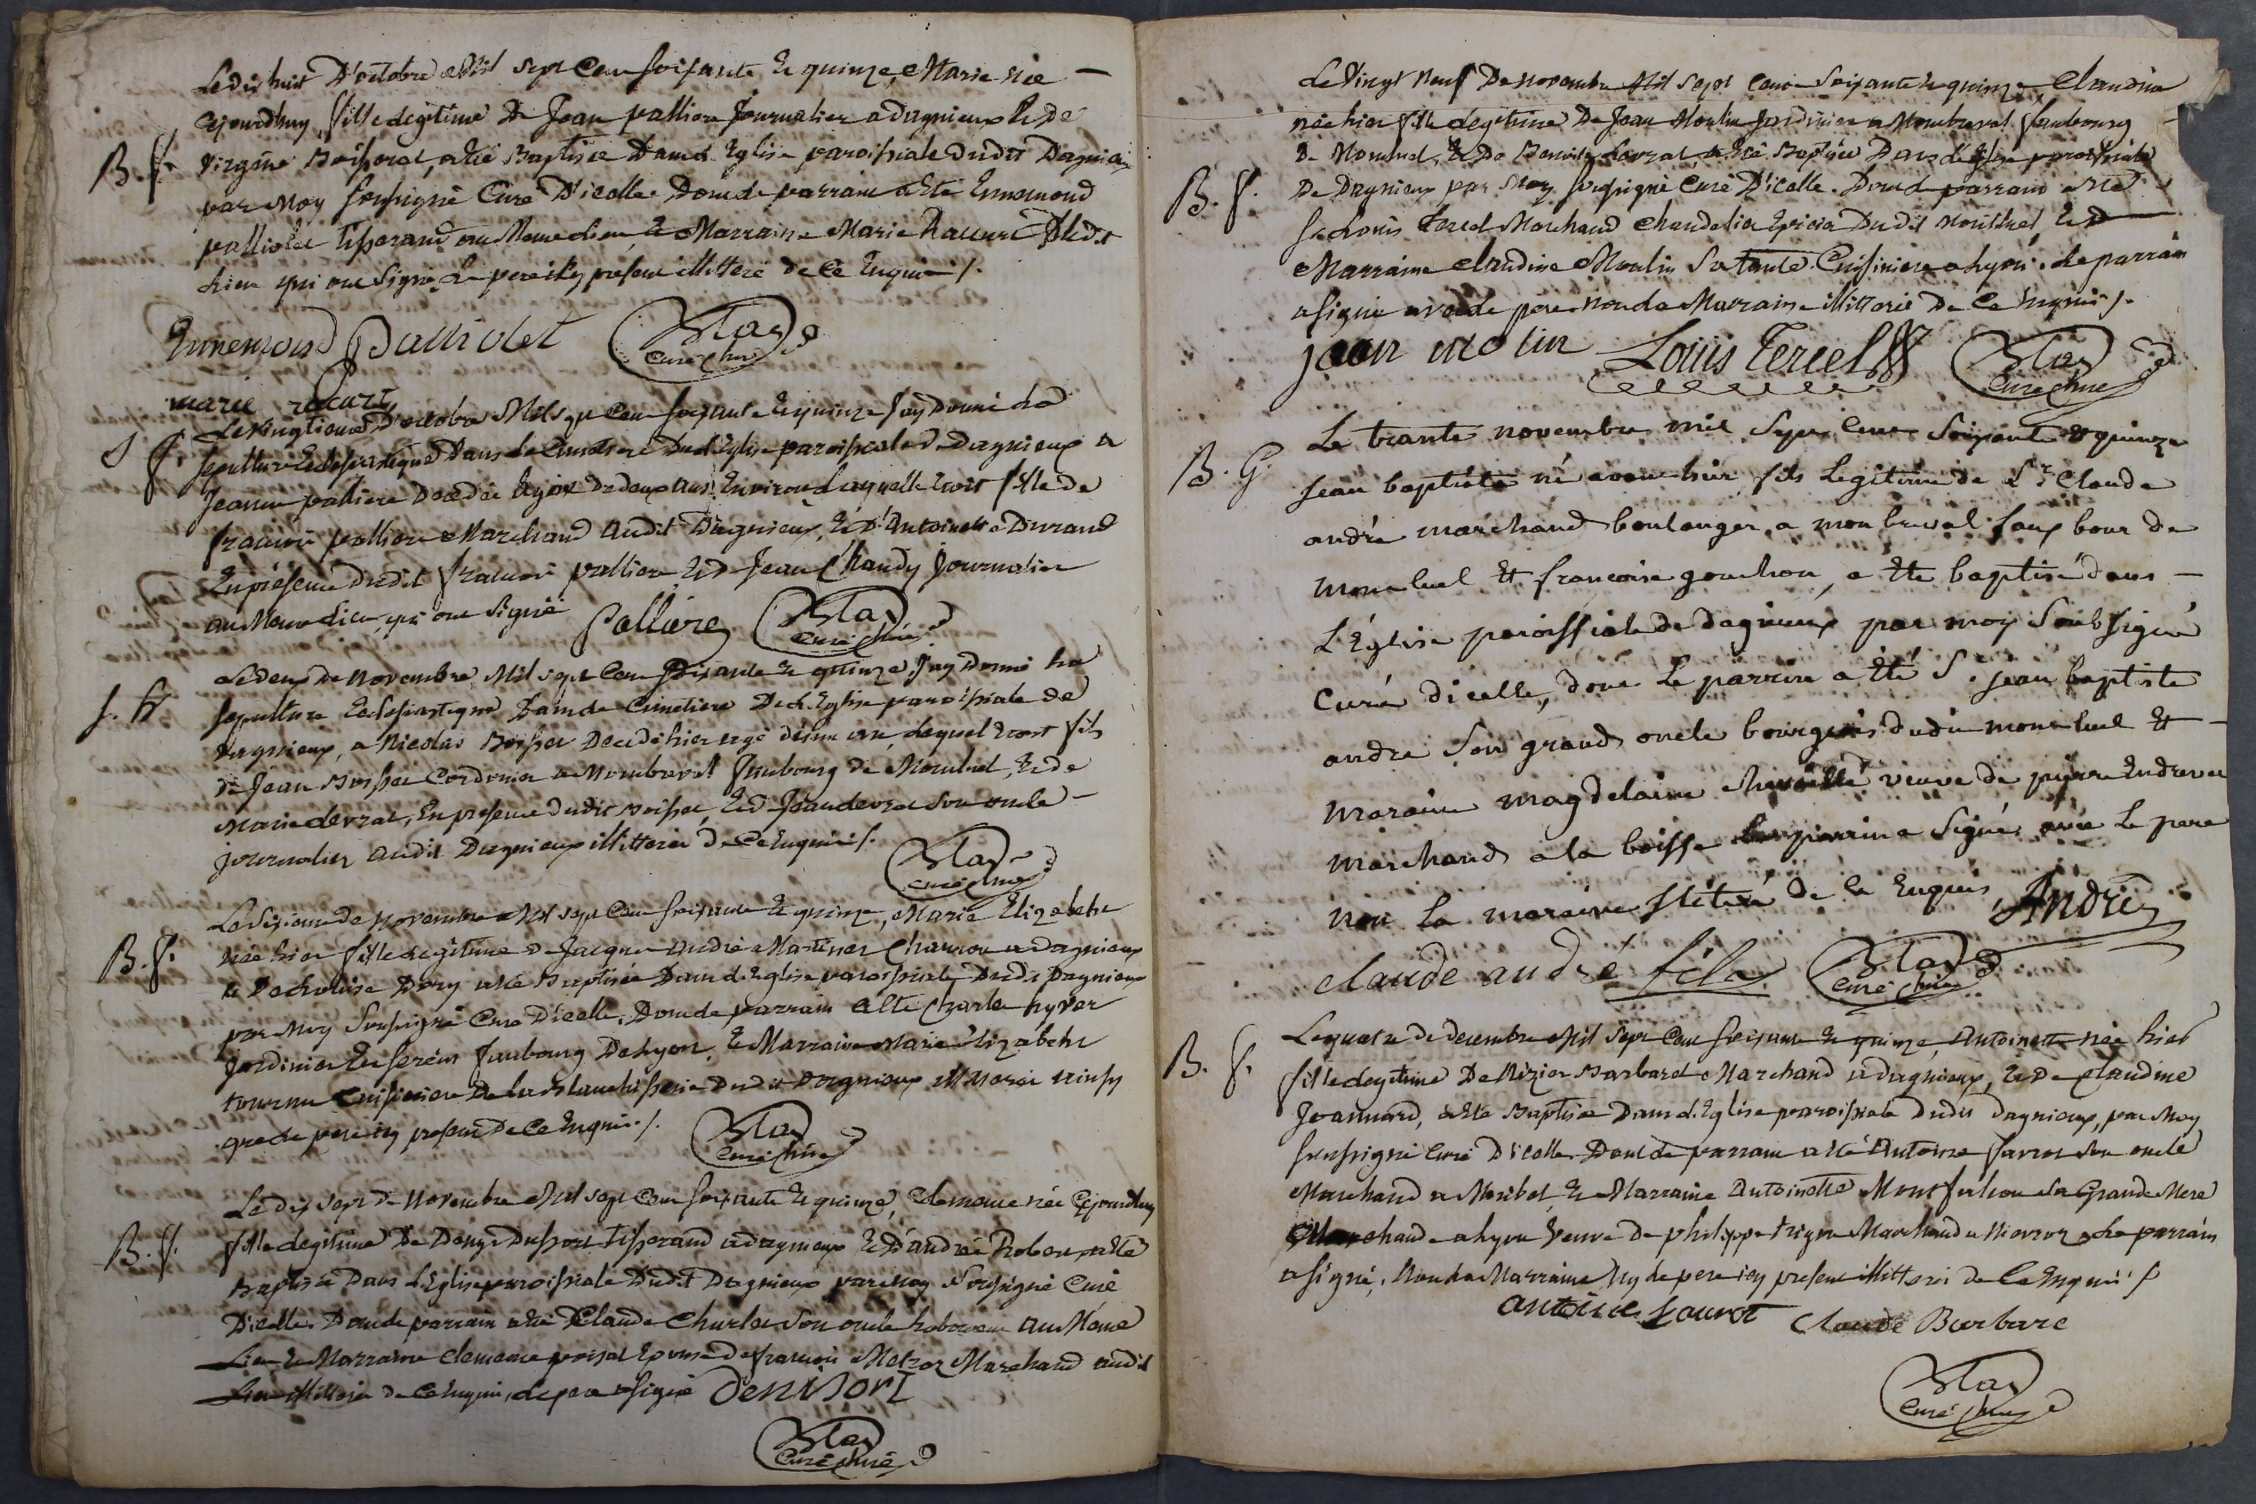 Le dix huit D'octobre Mil sept Cent soixante & quinze, Marie née
B. f.
ajourdhuy, fille legitime De Jean palliere Journalier a dagnieux & De
Virginie Boisserat, a été Baptisée Dans l'Eglise paroissiale dudit Dagnieux
par Moy soussigné Curé D'icelle. Dont le parrain a été Ennemond
palliolet Tisserand au Meme lieu, & Marraine Marie Raccurt dudit
lieu qui ont signé, le pere icy present illitteré de ce Enquis ./.
Ennemond Palliolet
Blad Curé
marie racurt
S f.
Le vingtieme D'octobre Mil sept Cent soixante & quinze J'ay Donné la
sepulture Eclesiastique Dans le Cimetiere De l'Eglise paroissiale de Dagnieux a
Jeanne palliere Decedée agée de deux ans Environ Laquelle étoit fille de
francois palliere Marchand audit Dagnieux, & D'Antoinette Durand
En présence dudit francois palliere & de Jean Chandy Journalier
au Meme Lieu, qui ont signé
Palliere
Blad Curé
S. G
Le deux de Novembre Mil sept Cent soixante & quinze J'ay Donné la
sepulture Eclesiastique Dans le Cimetiere De l'Eglise paroissiale de
Dagnieux, a Nicolas Boisset Decedé hier agé d'un an, lequel étoit fils
de Jean Boisset Cordonnier a Montbreval faubourg de Montluel, & de
Marie devrat, En presence dudit Boisset, & de Jean devrat son oncle
journalier audit Dagnieux illitterés de ce Enquis ./.
Blad Curé
B. f.
Le sixieme de Novembre Mil sept Cent soixante & quinze, Marie Elizabeth
née hier fille legitime de Jacques André Martinet Charron a Dagnieux
& De Louise Dory a été Baptisée Dans l'Eglise paroissiale Dudit Dagnieux
par Moy Soussigné Curé D'icelle, Dont le parrain a été Charle hyver
Jardinier En Serein faubourg De Lyon, & Marraine Marie Elizabeth
tournu Cuisiniere De la Blanchisserie Dudit Dagnieux illitterés ainsy
que le pere icy present De ce Enquis ./.
Blad Curé
B. f.
Le dix sept de Novembre Mil sept Cent soixante & quinze, Clemence née ajourdhuy
fille legitime De Denys Duport Tisserand a dagnieux & D'andrée Robert a été
Baptisée Dans l'Eglise paroissiale Dudit Dagnieux par Moy Soussigné Curé
D'icelle. Dont le parrain a été Claude Charles son oncle laboureur au Meme
Lieu & Marraine Clemence poisat Epouse de francois Marchand audit
Lieu illitterés de ce Enquis, le pere a signé
Denis Dort
Blad Curé
Le Vingt Neuf De Novembre Mil Sept Cent Soixante & quinze Claudine
née hier fille legitime De Jean Moulin Jardinier a Montbreval faubourg
De Montluel, & De Benoite a été Baptisée Dans l'Eglise paroissiale
B. f.
De Dagnieux par Moy soussigné Curé D'icelle. Dont le parrain a été
Sr Louis Tercel Marchand Chandelier Epicier Dudit Montluel & la
Marraine Claudine Moulin Sa Tante Cuisiniere a Lyon. Le parrain
a signé avec le pere non la Marraine illitterée De ce Enquis ./.
jean molin
Louis Tercel
Blad Curé
B. G.
Le trante novembre mil Sept Cent Soixante & quinze
jean baptiste né avant hier, fils Legitime de Sr Claude
andré marchand boulanger a mon breval faux bour de
mont luel Et francoise gonchon, a Eté baptisé dans
L'Église paroissiale de dagnieux par moy Soubsigné
Curé dicelle, dont Le parrin a Eté Sr jean baptiste
andre Son grand oncle bourgeois dudit mont luel Et
maraine magdelaine veuve de pierre
marchand a la boisse Le parrin a Signé avec Le pere
non La maraine illiterée de Ce Enquis,
André
claude andré fils
Blad Curé
B. f.
Le quatre de decembre Mil Sept Cent soixante & quinze, Antoinette née hier
fille legitime De Nizier Barbaret Marchand a dagnieux, & De Claudine
Joannard, a été Baptisée Dans l'Eglise paroissiale dudit Dagnieux, par Moy
soussigné Curé D'icelle. Dont le parrain a été Antoine favrot son oncle
Marchand a Miribel, & Marraine Antoinette Montfalcon sa Grande Mere
Marchande a Lyon Veuve de philippe Marchand a. Le parrain
a signé, Non la Marraine Ny le pere icy present illitterés de Ce Enquis ./.
antoine favrot
Claude Barbare
Blad Curé